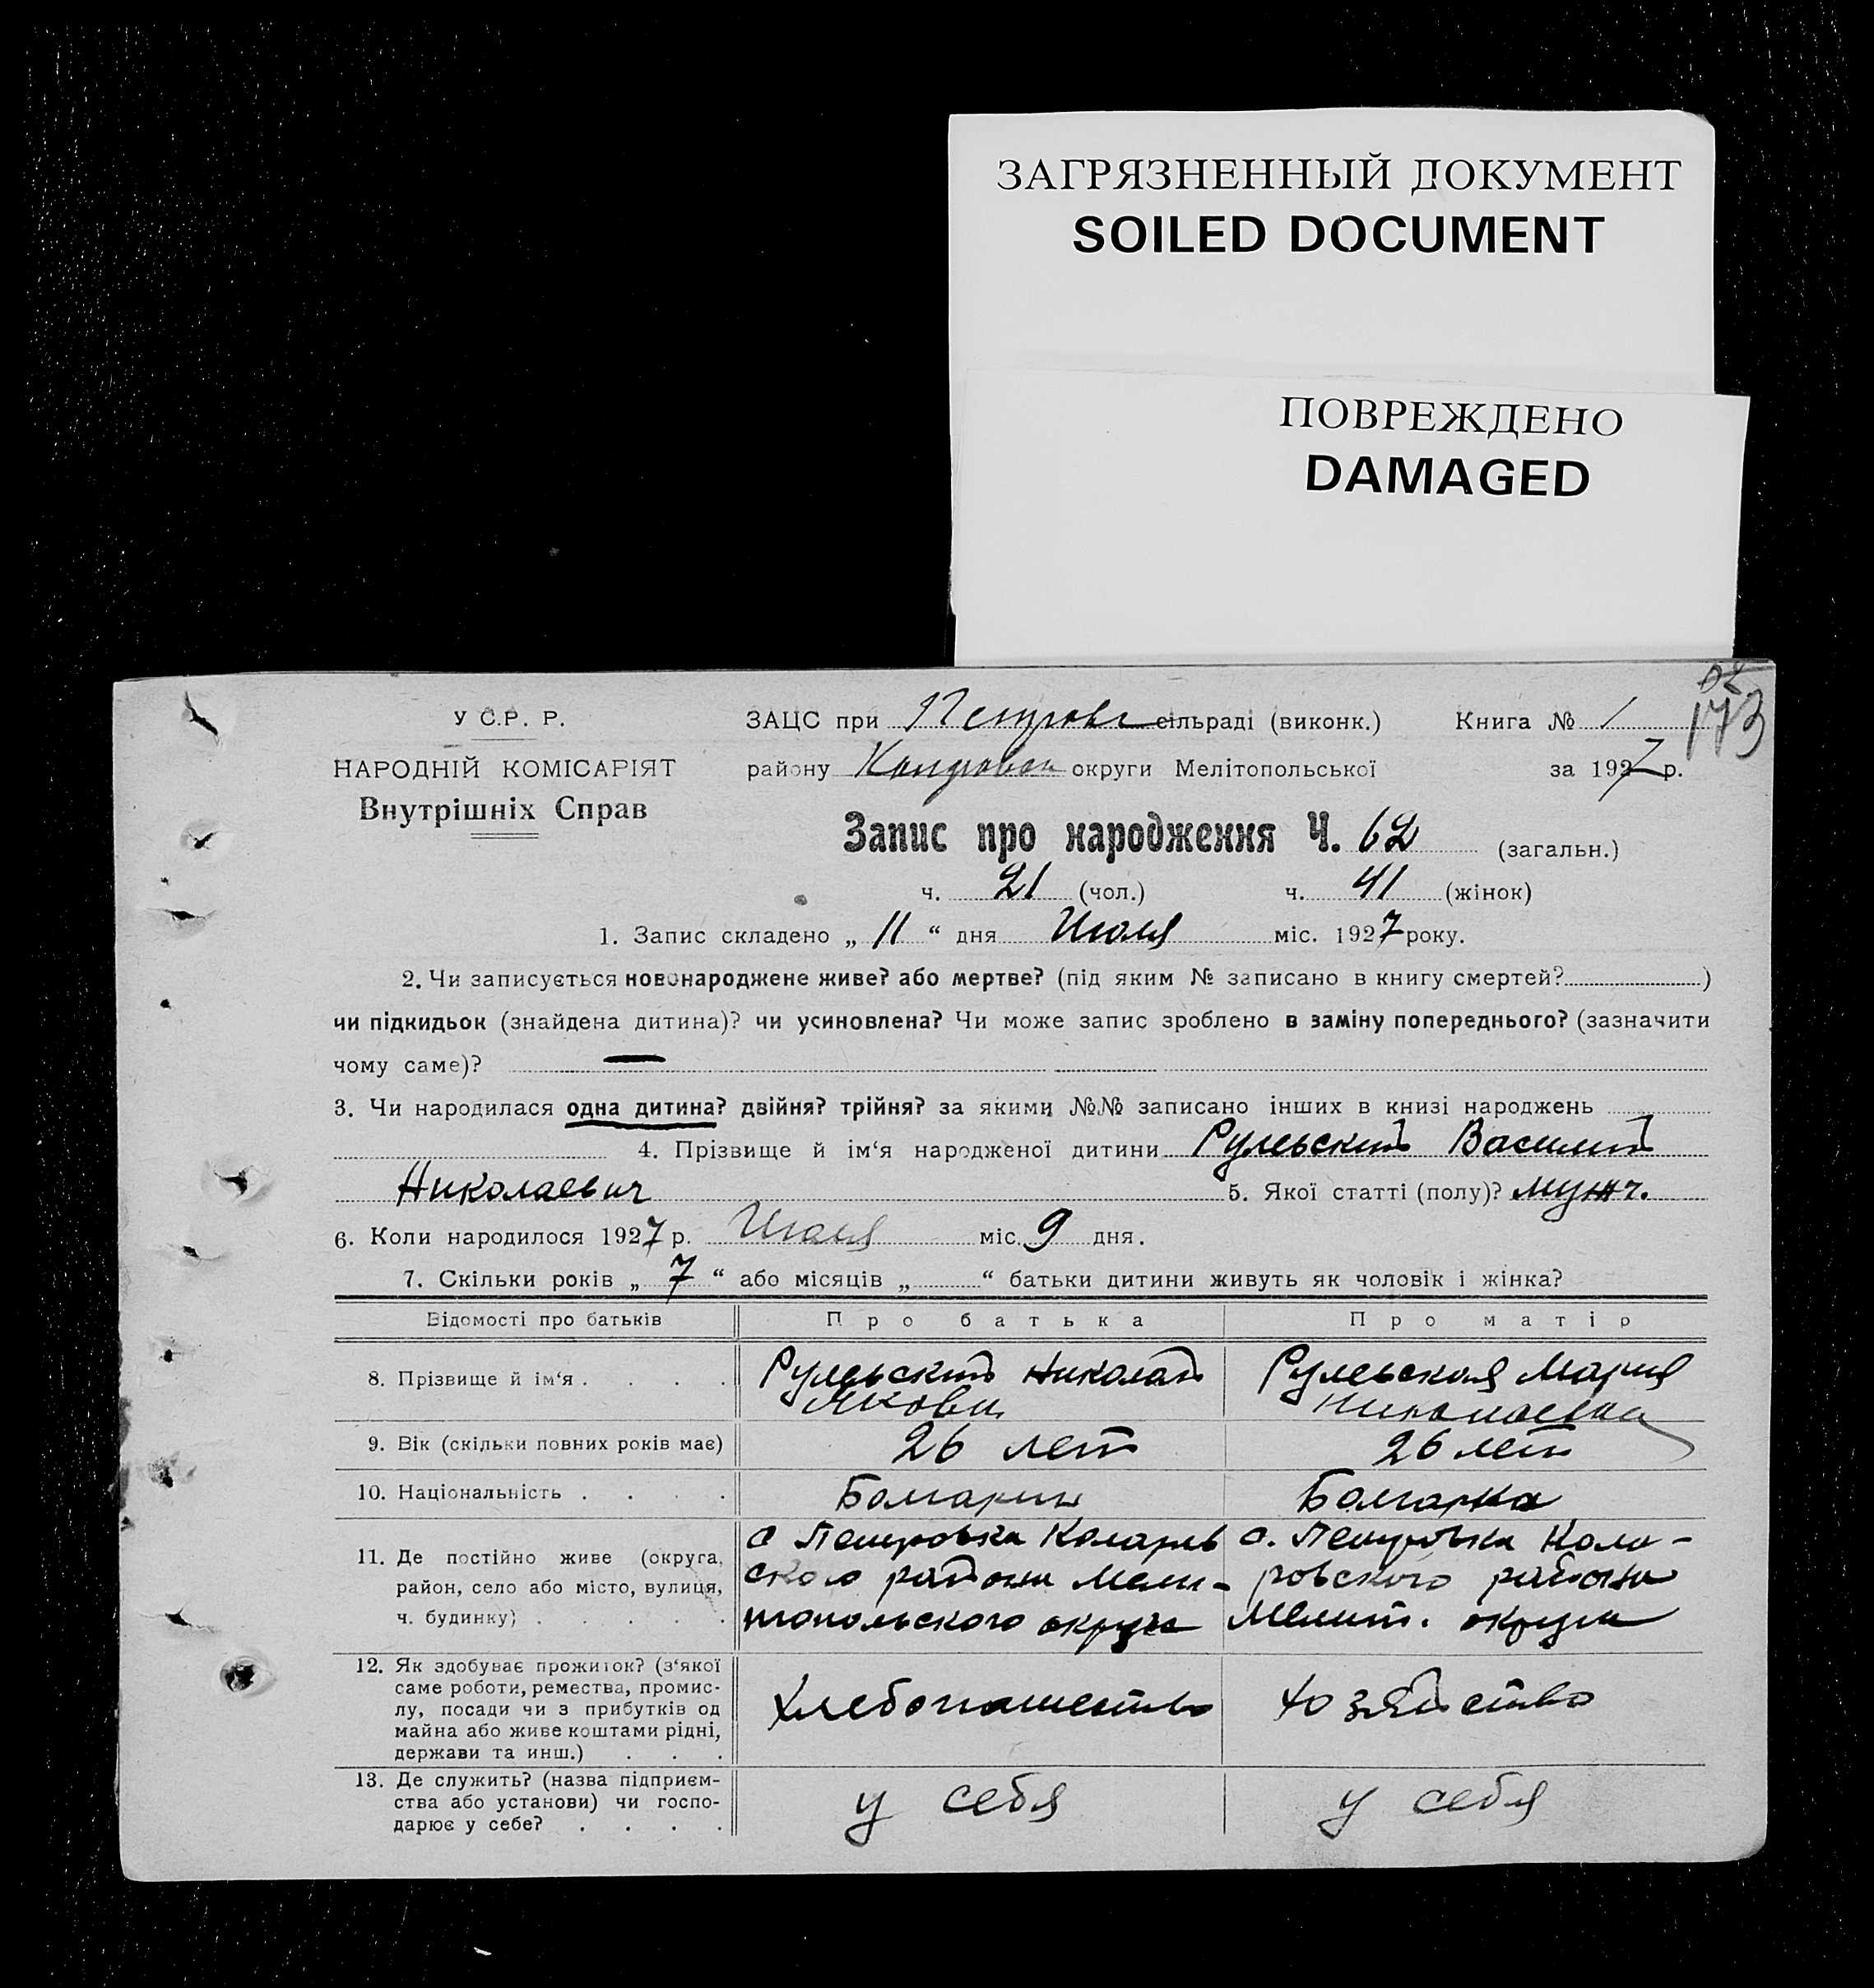 ЗАГРЯЗНЕННЫЙ ДОКУМЕНТ
SOILED DOCUMENT
ПОВРЕЖДЕНО
DAMAGED
173
У С.Р. Р.
НАРОДНІЙ КОМІСАРІЯТ
Внутрішніх Справ
ЗАЦС при Петровс сільраді (виконк.) Книга № 1
району округи Мелітопольської за 1927 р.
Запис про народження Ч. 62 (загальн.)
ч. 21 (чол.) ч. 41 (жінок)
1. Запис складено „ 11 “ дня Июля міс. 1927 року.
2. Чи записується новонароджене живе? або мертве? (під яким № записано в книгу смертей? )
чи підкидьок (знайдена дитина)? чи усиновлена? Чи може запис зроблено в заміну попереднього? (зазначити
чому саме)? —
3. Чи народилася одна дитина? двійня? трійня? за якими №№ записано інших в книзі народжень
4. Прізвище й ім‘я народженої дитини Рулевский Василий
Николаевич 5. Якої статті (полу)? мужч.
6. Коли народилося 1927 р. Июля міс. 9 дня.
7. Скільки років „ 7 “ або місяців „ “ батьки дитини живуть як чоловік і жінка?
Відомості про батьків Про батька Про матір
8. Прізвище й ім‘я . . . . Рулевский Николай Рулевская Мария
Якови Николаевна
9. Вік (скільки повних років має) 26 лет 26 лет
10. Національність . . . . Болгарин Болгарка
11. Де постійно живе (округа, район, село або місто, вулиця, ч. будинку) . . . . .
с Петровка Коларов
ского района Мели-
топольского округа
с. Петровка Кола-
ровского района
Мелит. округа
12. Як здобуває прожиток? (з‘якої
саме роботи, ремества, промис-
лу, посади чи з прибутків од
майна або живе коштами рідні,
держави та инш.) . . .
Хлебопашество Хозяйство
13. Де служить? (назва підприєм-
ства або установи) чи госпо-
дарює у себе? . . . .
у себя у себя